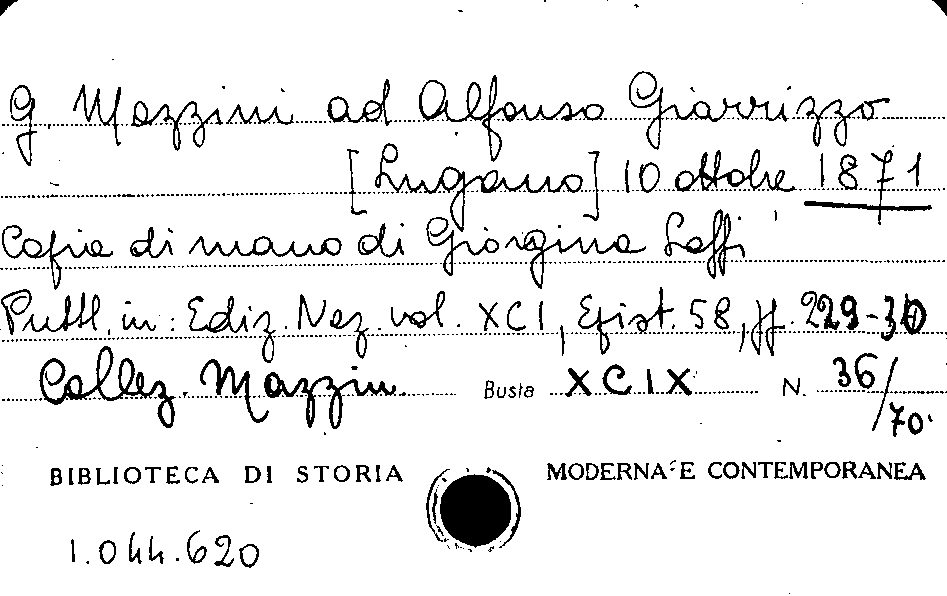 G. Mazzini ad Alfonso Giarrizzo
[Lugano] 10 ottobre 1871
Copia di mano di Giorgina Saffi
Pubbl. in: Ediz. Naz. vol. XCI, Epist. 58, pp. 229-30
Collez. Mazzini. Busta XCIX N. 36/70.
BIBLIOTECA DI STORIA MODERNA E CONTEMPORANEA
1.044.620